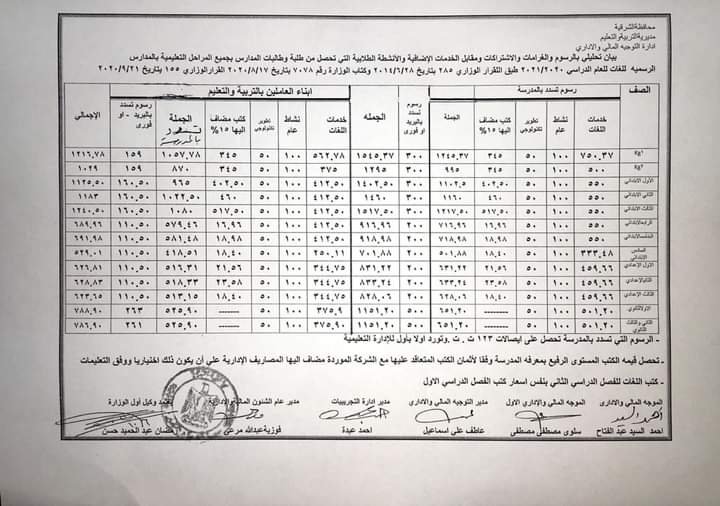 محافظة الشرقية
مديرية التربية والتعليم
ادارة التوجيه المالي والاداري
بيان تحليلي بالرسوم والغرامات والاشتراكات ومقابل الخدمات الإضافية والأنشطة الطلابية التي تحصل من طلبة وطالبات المدارس بجميع المراحل التعليمية بالمدارس
الرسمية للغات للعام الدراسي ٢٠٢١/٢٠٢٠ طبق القرار الوزاري ٢٨٥ بتاريخ ٢٠١٤/٦/٢٨ وكتاب الوزارة رقم ٧٠٧٨ بتاريخ ٢٠٢٠/٨/١٧ القرار الوزاري ١٥٥ بتاريخ ٢٠٢٠/٩/٢١
الصف رسوم تسدد بالمدرسة رسوم تسدد بالبريد او فورى الجمله ابناء العاملين بالتربية والتعليم رسوم تسدد بالبريد - او فورى الإجمالي
خدمات اللغات نشاط عام تطوير تكنولوجي كتب مضاف اليها ١٥% الجملة خدمات اللغات نشاط عام تطوير تكنولوجي كتب مضاف اليها ١٥% الجملة تسدد بالمدرسة
Kg١ ٧٥٠.٣٧ ١٠٠ ٥٠ ٣٤٥ ١٢٤٥.٣٧ ٣٠٠ ١٥٤٥.٣٧ ٥٦٢.٧٨ ١٠٠ ٥٠ ٣٤٥ ١٠٥٧.٧٨ ١٥٩ ١٢١٦.٧٨
Kg٢ ٥٠٠ ١٠٠ ٥٠ ٣٤٥ ٩٩٥ ٣٠٠ ١٢٩٥ ٣٧٥ ١٠٠ ٥٠ ٣٤٥ ٨٧٠ ١٥٩ ١٠٢٩
الأول الابتدائي ٥٥٠ ١٠٠ ٥٠ ٤٠٢.٥٠ ١١٠٢.٥ ٣٠٠ ١٤٠٢.٥٠ ٤١٢.٥٠ ١٠٠ ٥٠ ٤٠٢.٥٠ ٩٦٥ ١٦٠.٥٠ ١١٢٥.٥٠
الثاني الابتدائي ٥٥٠ ١٠٠ ٥٠ ٤٦٠ ١١٦٠ ٣٠٠ ١٤٦٠ ٤١٢.٥٠ ١٠٠ ٥٠ ٤٦٠ ١٠٢٢.٥٠ ١٦٠.٥٠ ١١٨٣
الثالث الابتدائي ٥٥٠ ١٠٠ ٥٠ ٥١٧.٥٠ ١٢١٧.٥٠ ٣٠٠ ١٥١٧.٥٠ ٤١٢.٥٠ ١٠٠ ٥٠ ٥١٧.٥٠ ١٠٨٠ ١٦٠.٥٠ ١٢٤٠.٥٠
الرابع الابتدائي ٥٥٠ ١٠٠ ٥٠ ١٦.٩٦ ٧١٦.٩٦ ٢٠٠ ٩١٦.٩٦ ٤١٢.٥٠ ١٠٠ ٥٠ ١٦.٩٦ ٥٧٩.٤٦ ١١٠.٥٠ ٦٨٩.٩٦
الخامس الابتدائي ٥٥٠ ١٠٠ ٥٠ ١٨.٩٨ ٧١٨.٩٨ ٢٠٠ ٩١٨.٩٨ ٤١٢.٥٠ ١٠٠ ٥٠ ١٨.٩٨ ٥٨١.٤٨ ١١٠.٥٠ ٦٩١.٩٨
السادس الابتدائي ٣٣٣.٤٨ ١٠٠ ٥٠ ١٨.٤٠ ٥٠١.٨٨ ٢٠٠ ٧٠١.٨٨ ٢٥٠.١١ ١٠٠ ٥٠ ١٨.٤٠ ٤١٨.٥١ ١١٠.٥٠ ٥٢٩.٠١
الاول الإعدادي ٤٥٩.٦٦ ١٠٠ ٥٠ ٢١.٥٦ ٦٣١.٢٢ ٢٠٠ ٨٣١.٢٢ ٣٤٤.٧٥ ١٠٠ ٥٠ ٢١.٥٦ ٥١٦.٣١ ١١٠.٥٠ ٦٢٦.٨١
الثاني الإعدادي ٤٥٩.٦٦ ١٠٠ ٥٠ ٢٣.٥٨ ٦٣٣.٢٤ ٢٠٠ ٨٣٣.٢٤ ٣٤٤.٧٥ ١٠٠ ٥٠ ٢٣.٥٨ ٥١٨.٣٣ ١١٠.٥٠ ٦٢٨.٨٣
الثالث الإعدادي ٤٥٩.٦٦ ١٠٠ ٥٠ ١٨.٤٠ ٦٢٨.٠٦ ٢٠٠ ٨٢٨.٠٦ ٣٤٤.٧٥ ١٠٠ ٥٠ ١٨.٤٠ ٥١٣.١٥ ١١٠.٥٠ ٦٢٣.٦٥
الاول الثانوي ٥٠١.٢٠ ١٠٠ ٥٠ ------- ٦٥١.٢٠ ٥٠٠ ١١٥١.٢٠ ٣٧٥.٩ ١٠٠ ٥٠ ------- ٥٢٥.٩٠ ٢٦٣ ٧٨٨.٩٠
الثاني والثالث الثانوي ٥٠١.٢٠ ١٠٠ ٥٠ ------- ٦٥١.٢٠ ٥٠٠ ١١٥١.٢٠ ٣٧٥.٩ ١٠٠ ٥٠ ------- ٥٢٥.٩٠ ٢٦١ ٧٨٦.٩٠
- الرسوم التي تسدد بالمدرسة تحصل على ايصالات ١٢٣ ت . ت . وتورد اولا بأول للإدارة التعليمية
- تحصل قيمه الكتب المستوى الرفيع بمعرفه المدرسة وفقا لأثمان الكتب المتعاقد عليها مع الشركة الموردة مضاف اليها المصاريف الإدارية على أن يكون ذلك اختياريا ووفق التعليمات
- كتب اللغات للفصل الدراسي الثاني بنفس اسعار كتب الفصل الدراسي الاول
الموجه المالي والاداري الموجه المالي والاداري الاول مدير التوجيه المالي والاداري مدير ادارة التجريبيات مدير عام الشئون المالية والادارية يعتمد وكيل أول الوزارة
احمد السيد عبد الفتاح سلوى مصطفى مصطفى عاطف على اسماعيل احمد عبدة فوزية عبدالله مرعى رمضان عبد الحميد حسن